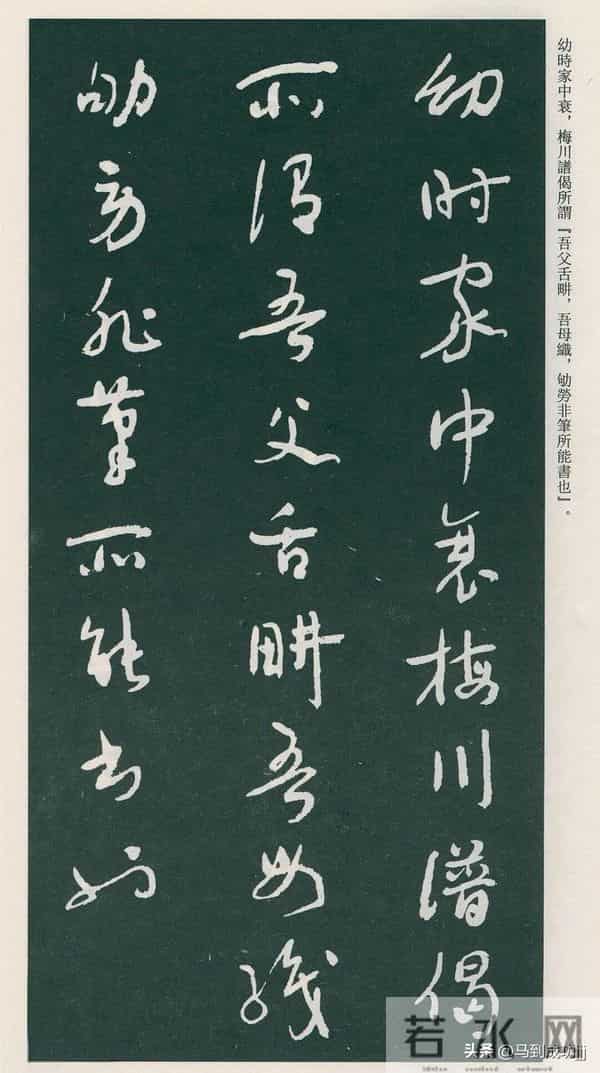 幼時家中衰，梅川譜偈所謂『吾父舌畊，吾母織，劬勞非筆所能書也』。
幼時家中衰梅川譜偈
所謂吾父舌畊吾母織
劬勞非筆所能書也
若水网
头条 @马到成功jj